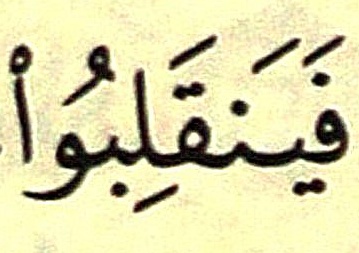 فَيَنقَلِبُواْ